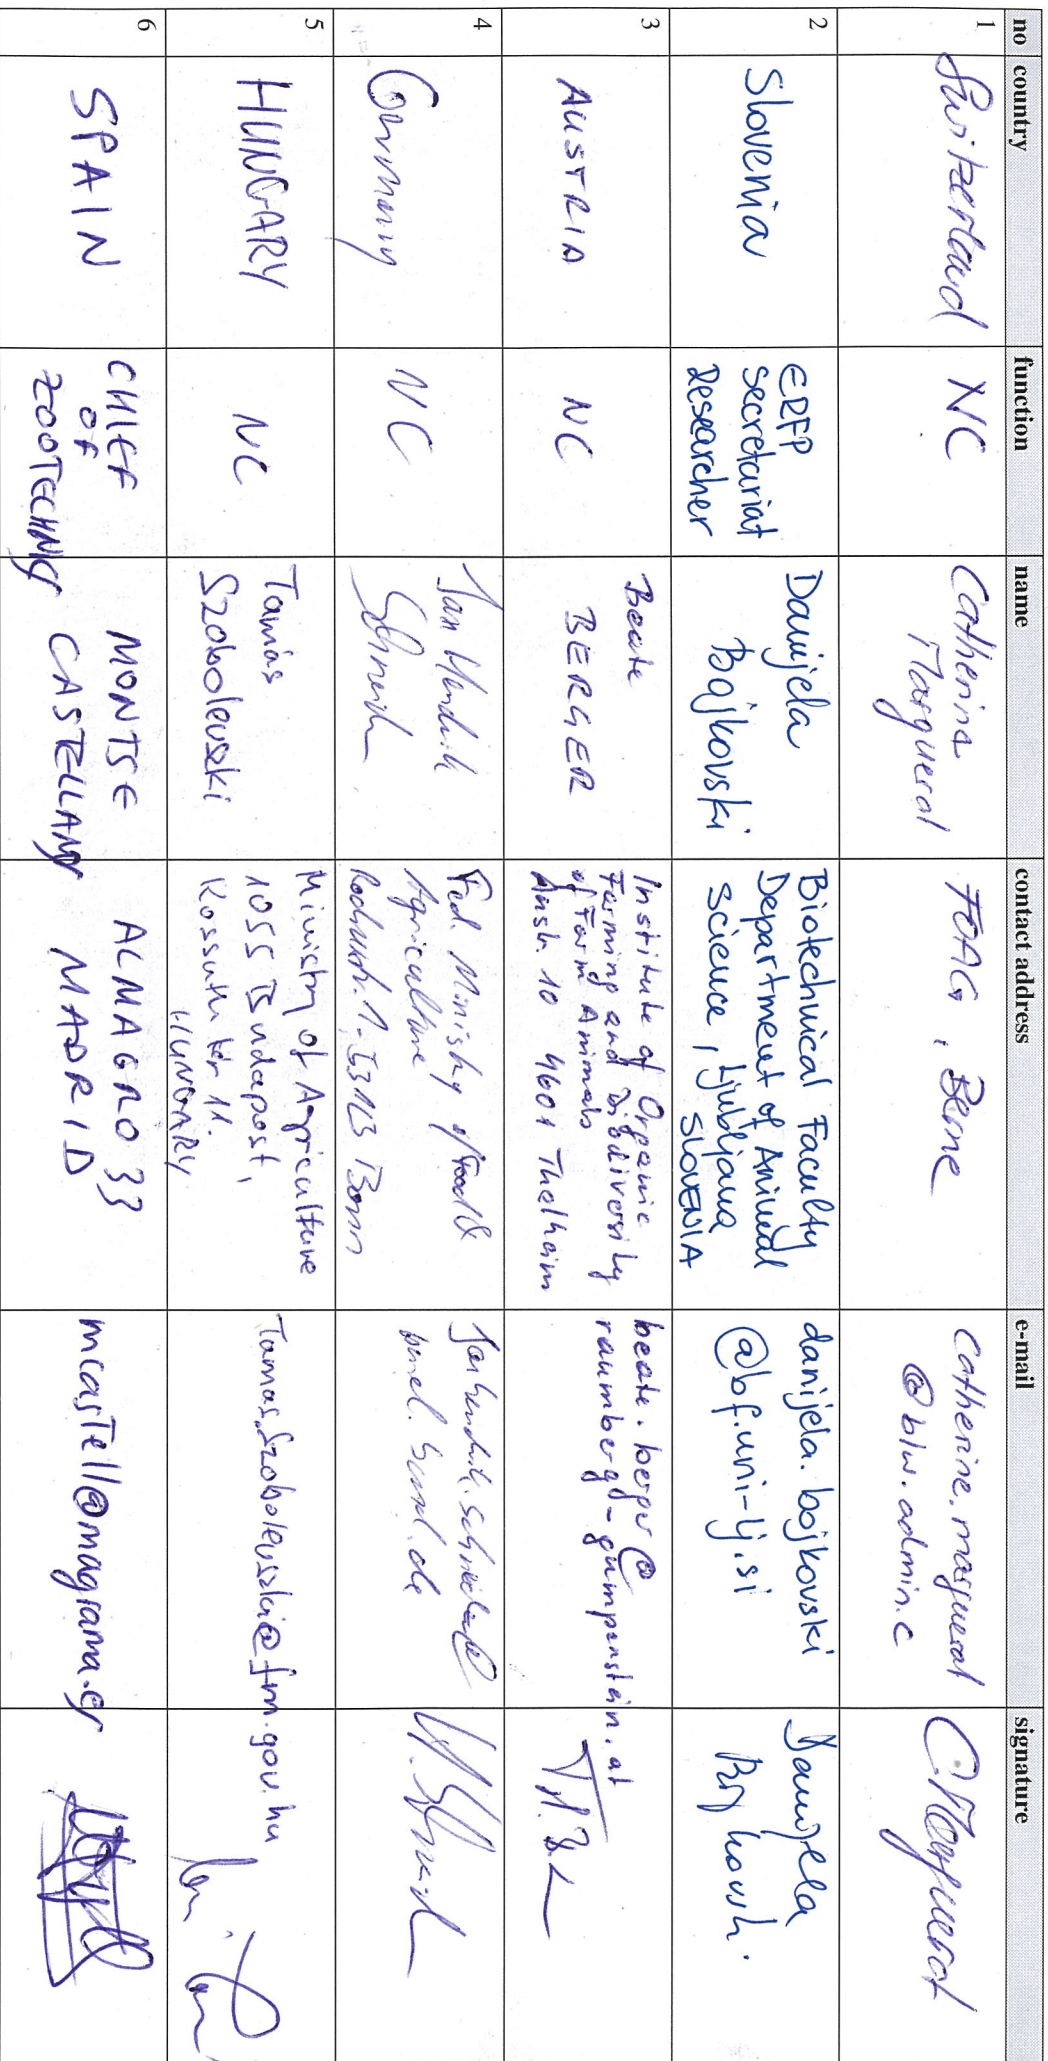 no country function name contact address e-mail signature
1 Switzerland NC Catherine Marguerat FOAG, Berne catherine.marguerat
@blw.admin.c C. Marguerat
2 Slovenia ERFP
secretariat
researcher
Danijela
Bojkovski
Biotechnical Faculty
Department of Animal
Science, Ljubljana
SLOVENIA
danijela.bojkovski
@bf.uni-lj.si
Danijela
Bojkovski
3 AUSTRIA NC
Beate
BERGER
Institute of Organic
Farming and Biodiversity
of Farm Animals
Austr. 10 4601 Thalheim
beate.berger@
raumberg-gumpenstein.at
4 Germany NC
Jan Hendrik
Schneider
Fed. Ministry of Food &
Agriculture
Rochusstr. 1, 53123 Bonn
bmel.bund.de
5 HUNGARY NC
Tamás
Szobolevszki
Ministry of Agriculture
1055 Budapest,
Kossuth tér 11.
HUNGARY
Tamas.Szobolevszki@fm.gov.hu
6 SPAIN
CHIEF
OF
ZOOTECHNY
MONTSE
CASTELLANO
ALMAGRO 33
MADRID
mcastell@magrama.es